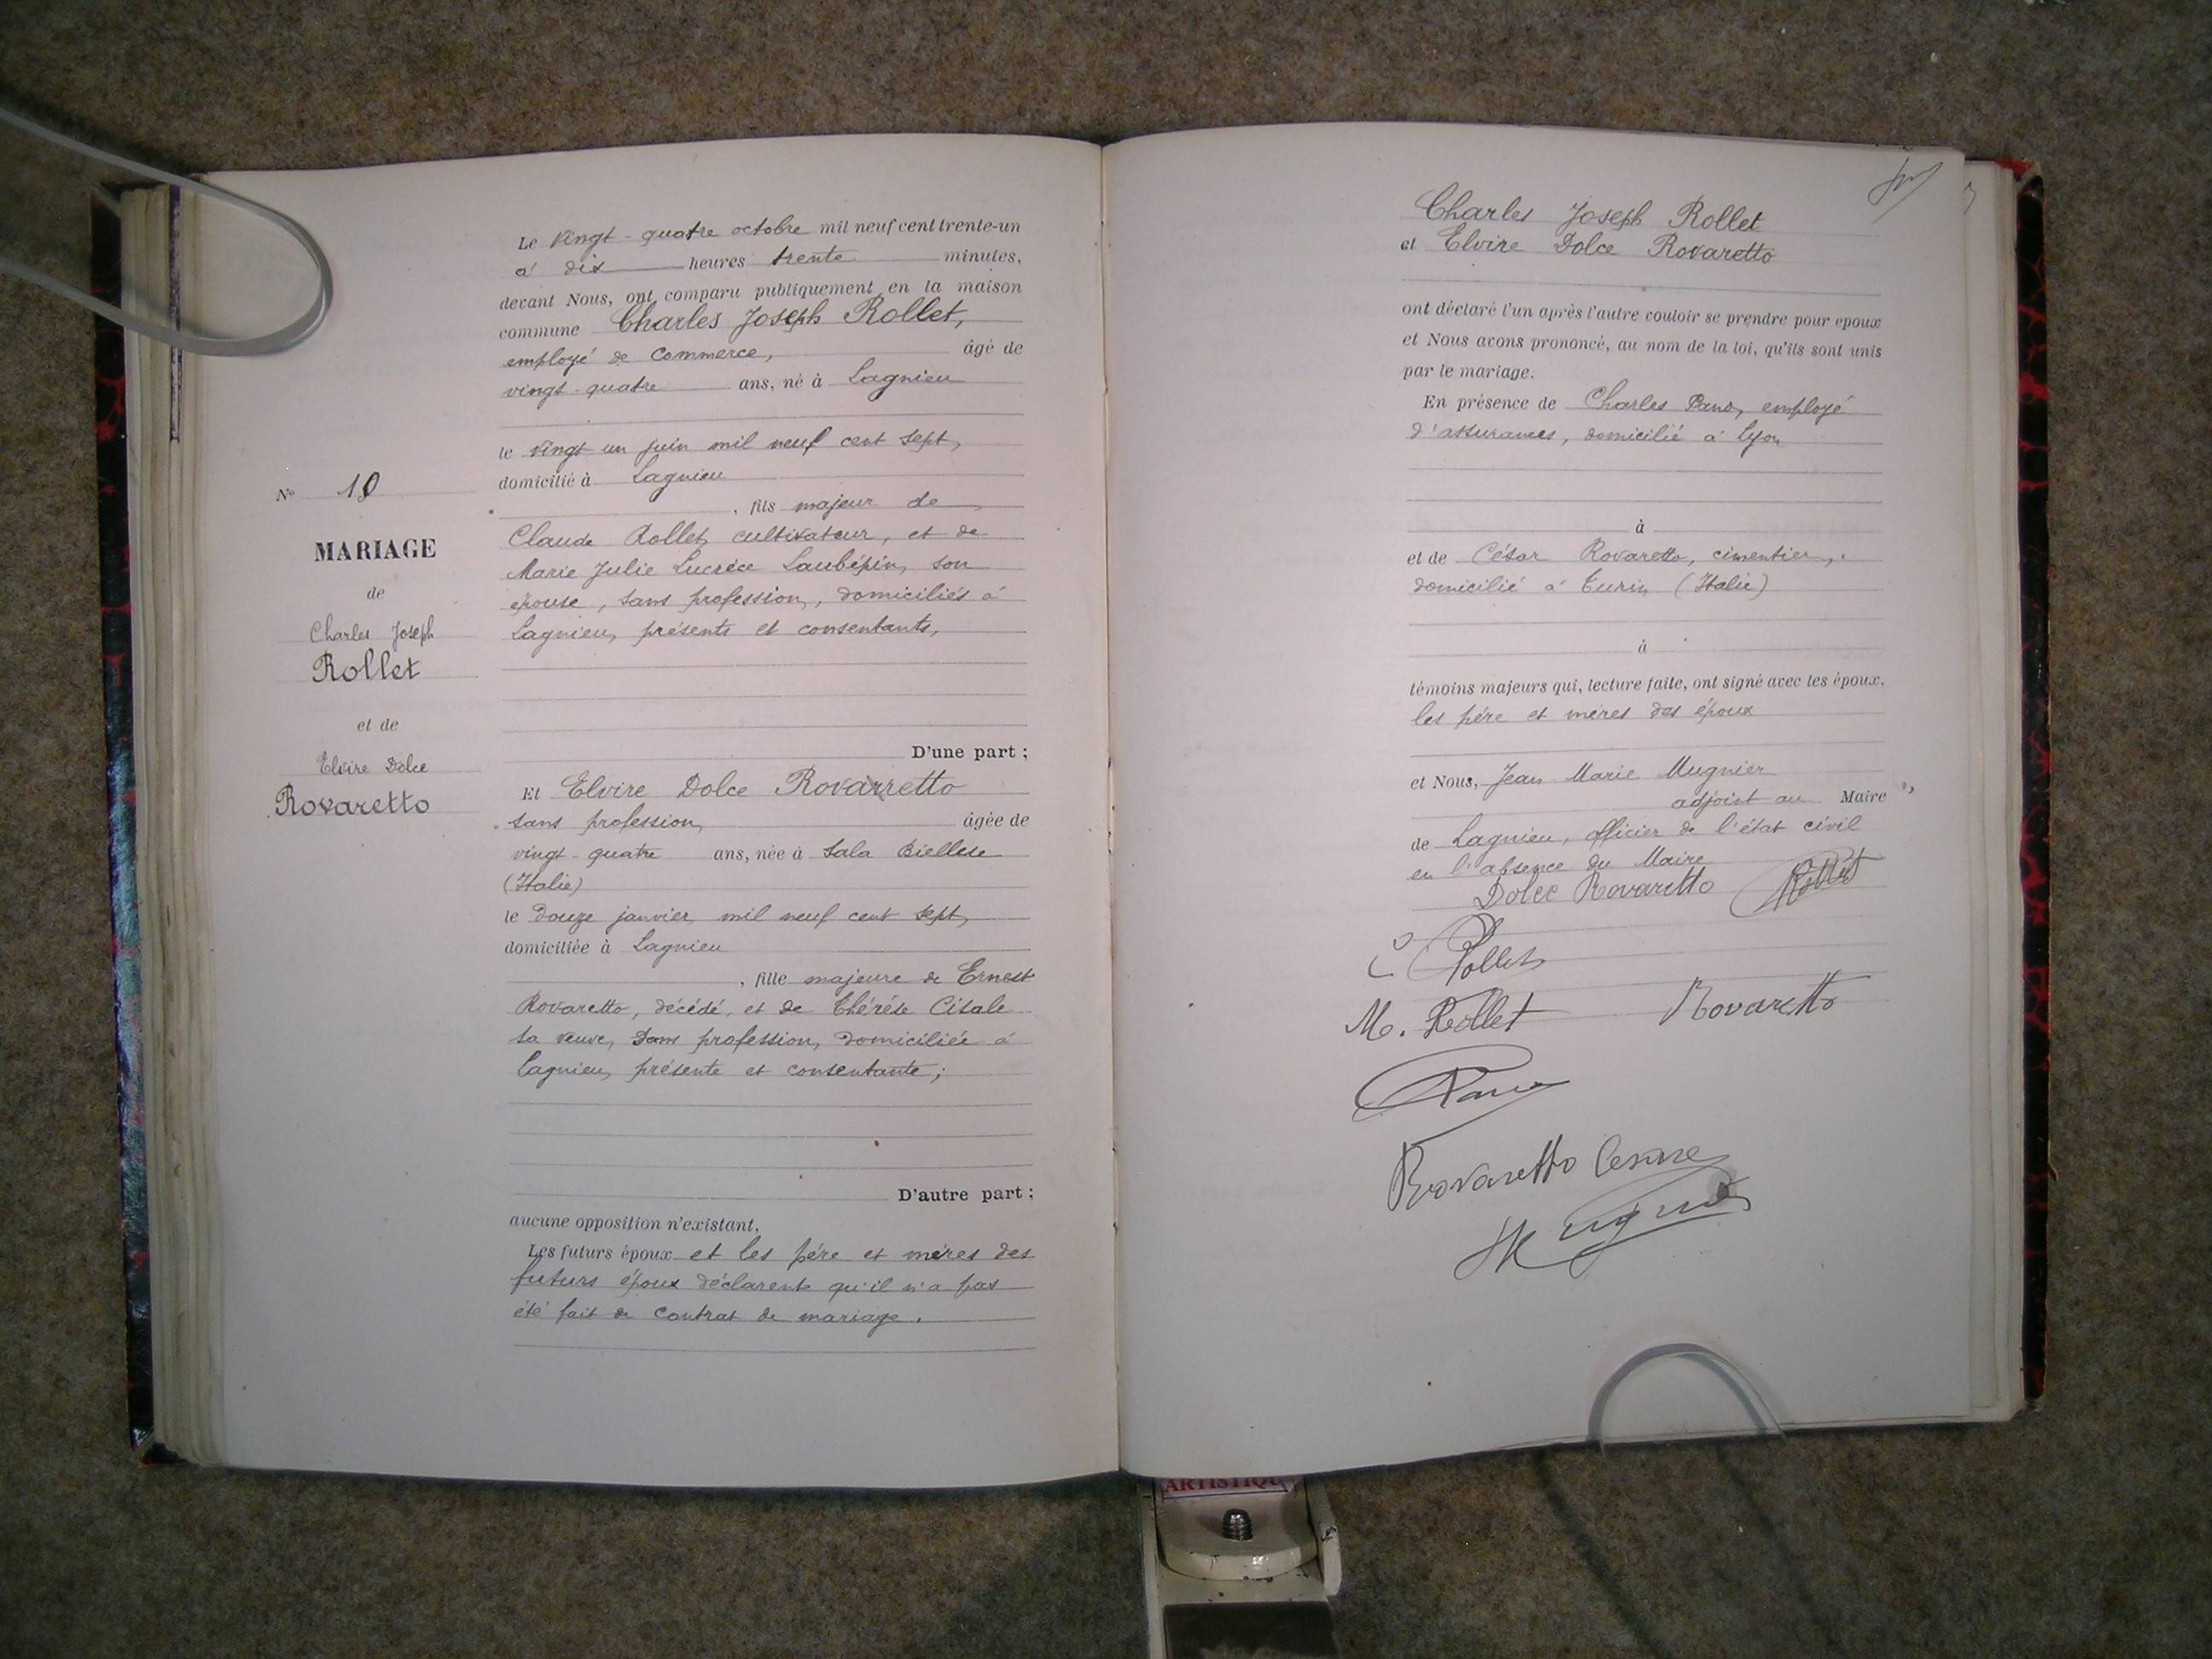 N° 10
MARIAGE
de
Charles Joseph
Rollet
et de
Elvire Dolce
Rovaretto
Le vingt-quatre octobre mil neuf cent trente-un
à dix heures trente minutes,
devant Nous, ont comparu publiquement en la maison
commune Charles Joseph Rollet,
employé de commerce, âgé de
vingt-quatre ans, né à Lagnieu
le vingt un juin mil neuf cent sept,
domicilié à Lagnieu
, fils majeur de
Claude Rollet, cultivateur, et de
Marie Julie Lucrèce Laubépin, son
épouse, sans profession, domiciliés à
Lagnieu, présents et consentants,
D'une part ;
Et Elvire Dolce Rovarretto
sans profession, âgée de
vingt-quatre ans, née à Sala Biellese
(Italie)
le douze janvier mil neuf cent sept,
domiciliée à Lagnieu
, fille majeure de Ernest
Rovaretto, décédé, et de Thérèse Cisale
sa veuve, sans profession, domiciliée à
Lagnieu, présente et consentante ;
D'autre part ;
aucune opposition n'existant,
Les futurs époux et les père et mères des
futurs époux déclarent qu'il n'a pas
été fait de contrat de mariage.
Charles Joseph Rollet
et Elvire Dolce Rovaretto
ont déclaré l'un après l'autre vouloir se prendre pour époux
et Nous avons prononcé, au nom de la loi, qu'ils sont unis
par le mariage.
En présence de Charles employé
d'assurances, domicilié à Lyon
à
et de César Rovaretto, cimentier,
domicilié à Turin (Italie)
à
témoins majeurs qui, lecture faite, ont signé avec les époux.
les père et mères des époux
et Nous, Jean Marie Mugnier
adjoint au Maire
de Lagnieu, officier de l'état civil
en l'absence du Maire
Dolce Rovaretto Rollet
C Rollet
M. Rollet Rovaretto
Rovaretto Cesare
Mugnier
ARTISTIQUE